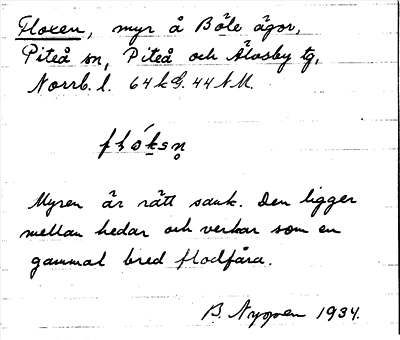 Floxen, myr å Böle ägor,
Piteå sn, Piteå och Älvsby tg,
Norrb. l. 64 k G. 44 N M.
Myren är rätt sank. Den ligger
mellan hedar och verkar som en
gammal bred flodfåra.
B. 1934.